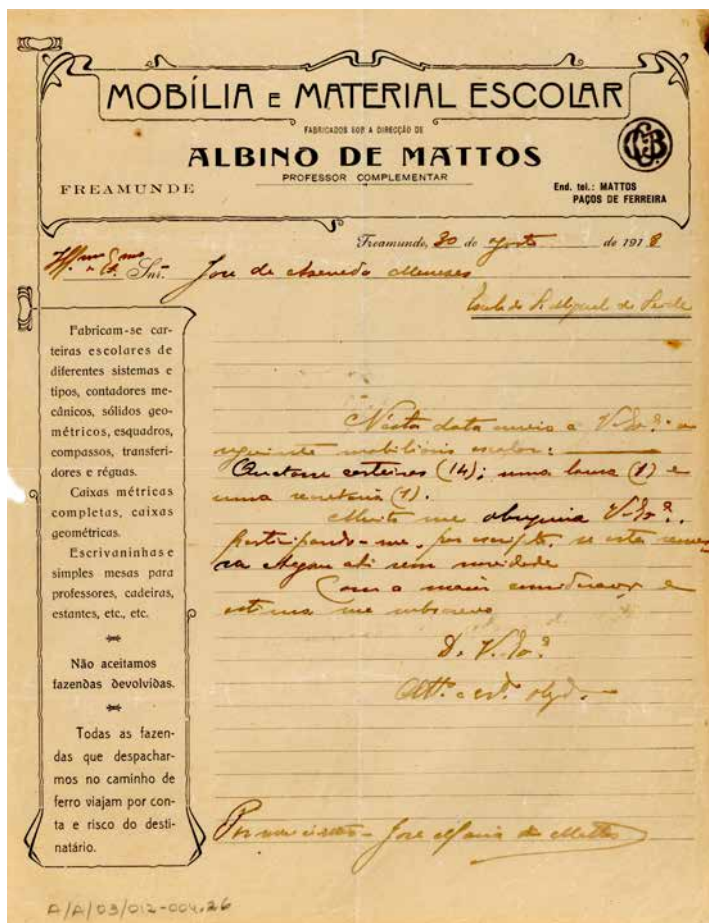 MOBÍLIA E MATERIAL ESCOLAR
FABRICADOS SOB A DIRECÇÃO DE
ALBINO DE MATTOS
PROFESSOR COMPLEMENTAR
FREAMUNDE
End. tel.: MATTOS
PAÇOS DE FERREIRA
Freamunde, 30 de Agosto de 1918
Snr. José de Azevedo Menezes
Escola de S. Miguel de Seide
Fabricam-se car-
teiras escolares de
diferentes sistemas e
tipos, contadores me-
cânicos, sólidos geo-
métricos, esquadros,
compassos, transferi-
dores e réguas.
Caixas métricas
completas, caixas
geométricas.
Escrivaninhas e
simples mesas para
professores, cadeiras,
estantes, etc., etc.
Não aceitamos
fazendas devolvidas.
Todas as fazen-
das que despachar-
mos no caminho de
ferro viajam por con-
ta e risco do desti-
natário.
Nésta data envio a V. Ex.ª o
seguinte mobiliario escolar:
Quatorze carteiras (14); uma lousa (1) e
uma secretaria (1).
Muito me obsequia V. Ex.ª,
participando-me, por escripto, se esta remes-
sa chegou ahi sem novidade
Com a maior consideração e
estima me subscrevo
D. V. Ex.ª
Att.º e
José Maria de Mattos
A/A/03/012-004.26